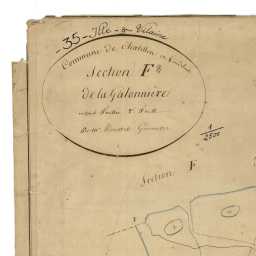 35 - Ille-&-Vilaine
Commune de Chatillon en Vendelais
Section F
de la Galonnière
en Feuilles
Par Mr Géomètre
1/2500
Section F